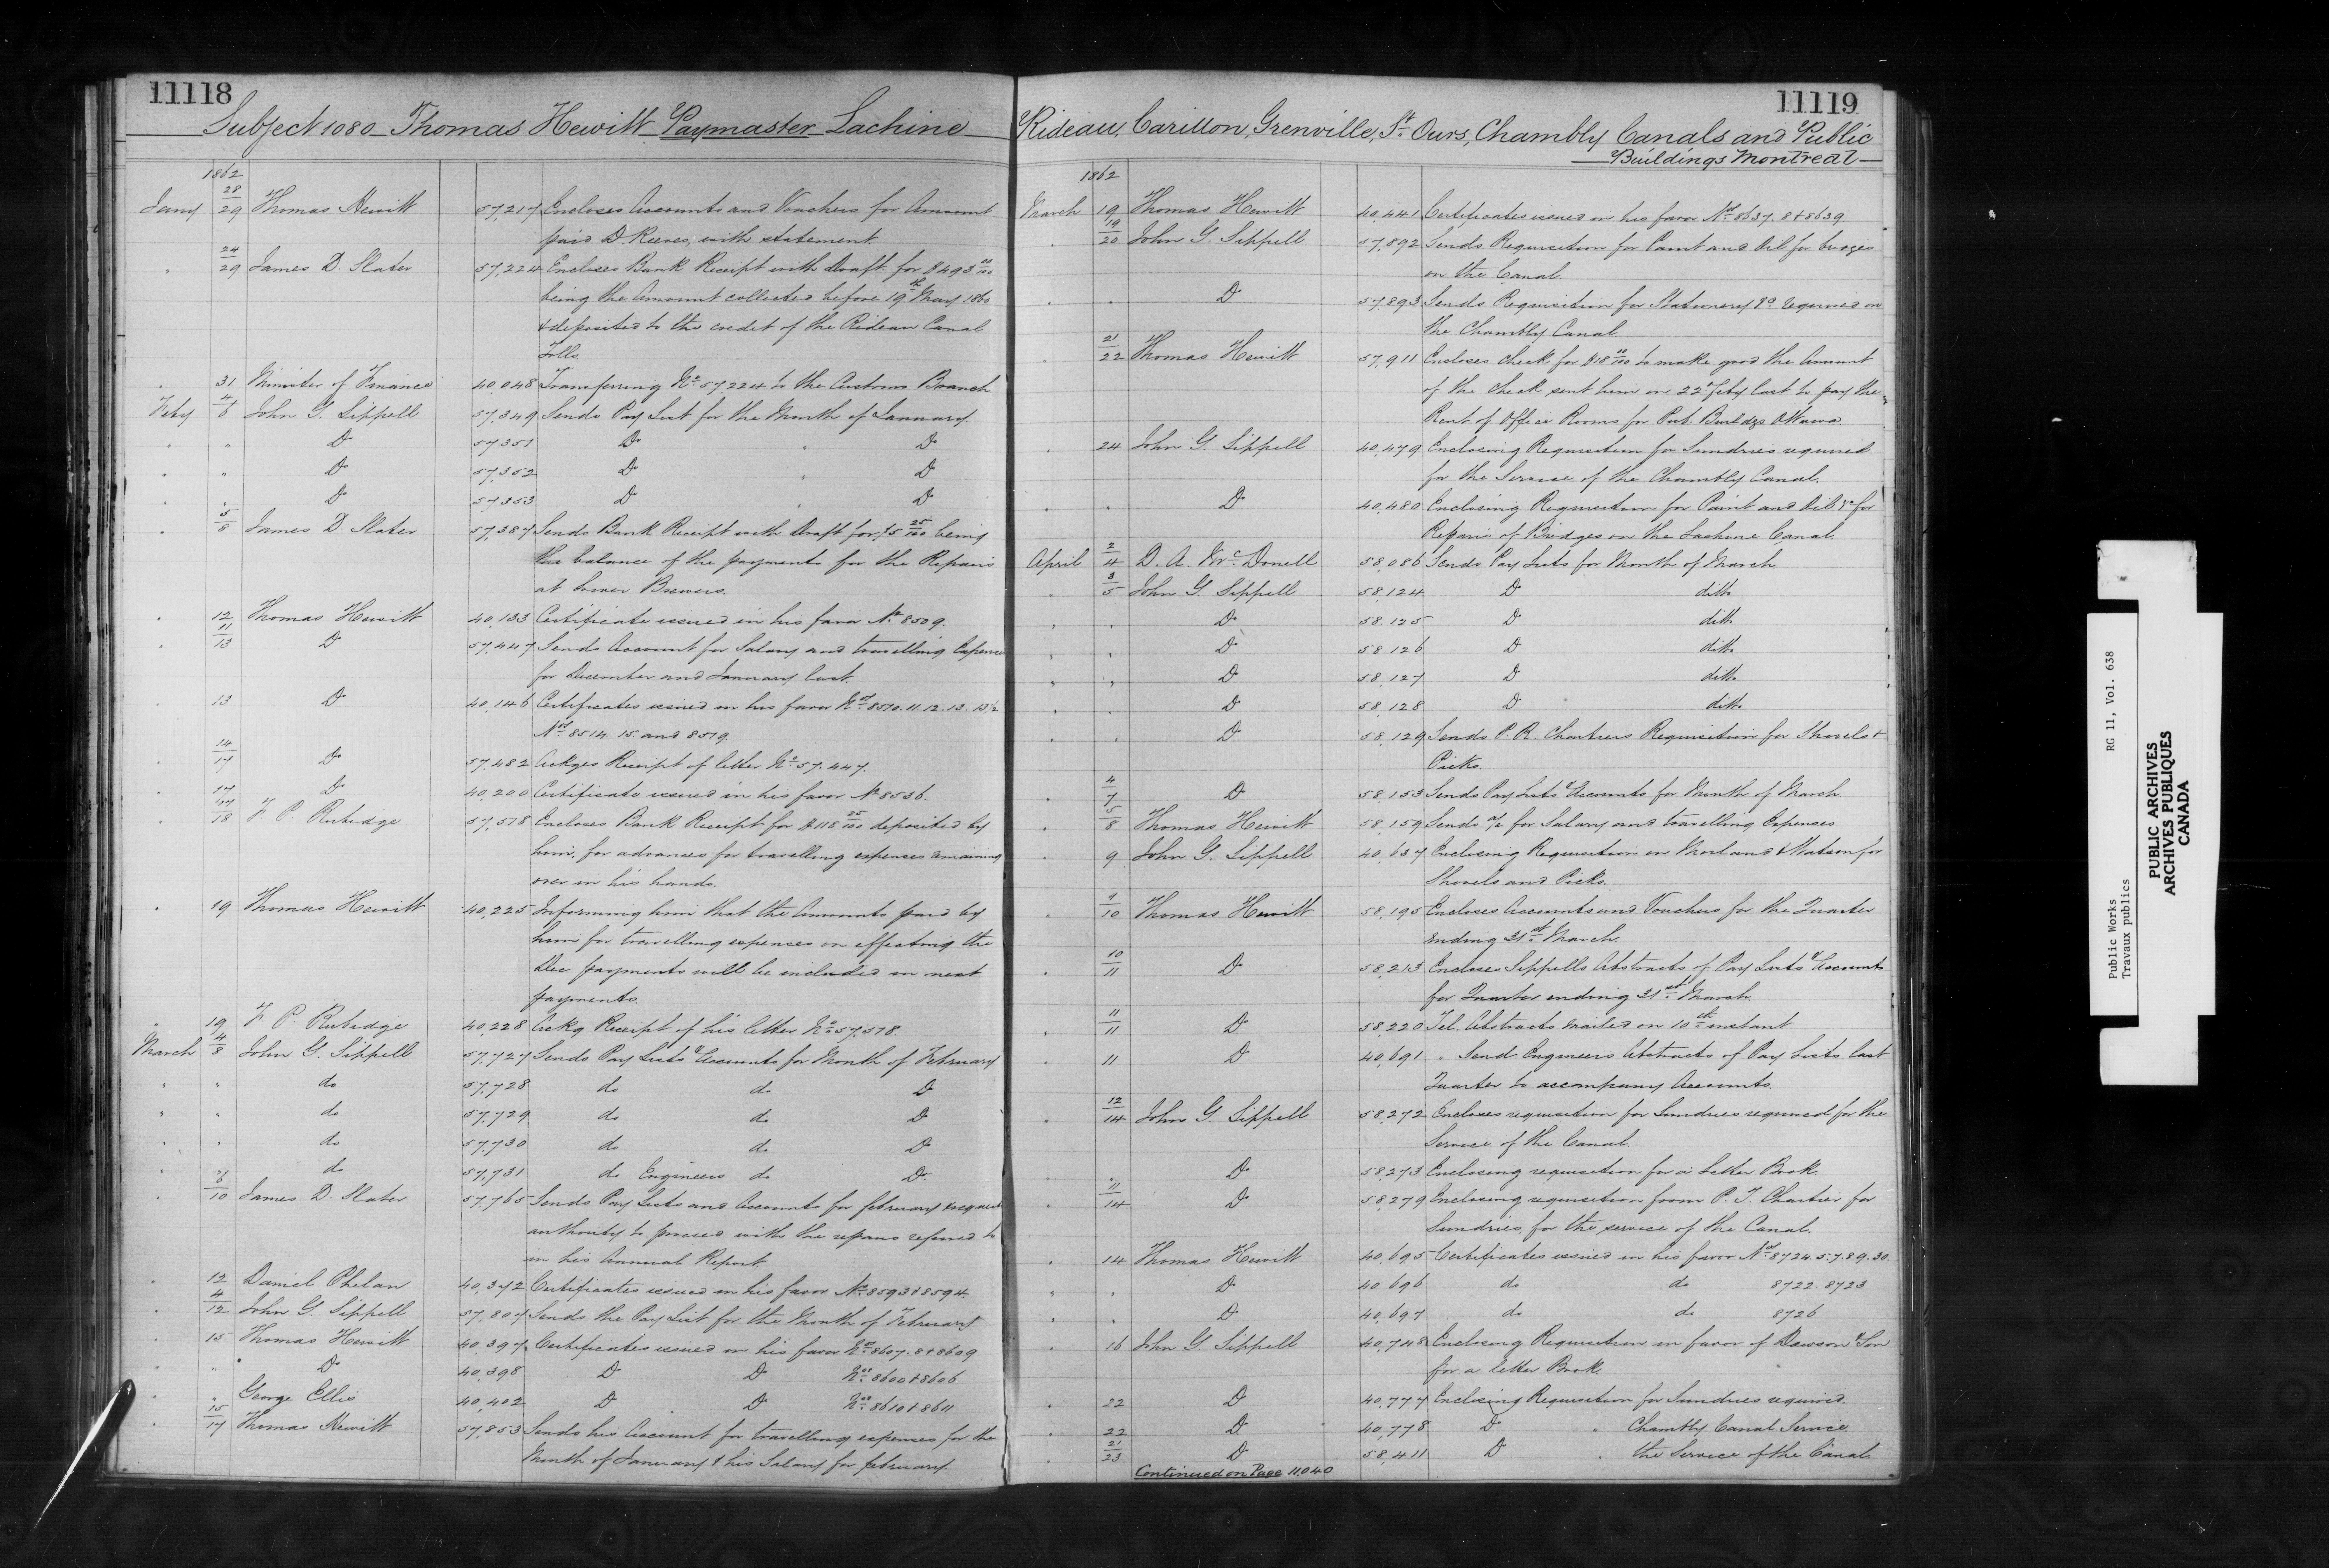 11118
Subject 1080 Thomas Hewitt Paymaster Lachine
1862
Jany 28/29 Thomas Hewitt 57,217 Encloses Accounts and Vouchers for Amount
paid D. Reeves, with statement.
" 24/29 James D. Slater 57,224 Encloses Bank Receipt with Draft for $493 00/100
being the Amount collected before 19th May 1860
& deposited to the credit of the Rideau Canal
Tolls.
" 31 Minister of Finance 40,048 Transferring No. 57224 to the Customs Branch
Feby 4/6 John G. Sippell 57,349 Sends Pay List for the Month of January.
" " Do 57351 Do " Do
" " Do 57,352 Do " Do
" " Do 57353 Do " Do
" 5/8 James D. Slater 57,387 Sends Bank Receipt with Draft for $5 25/100 being
the balance of the payments for the Repairs
at Lower Brewers.
" 12 Thomas Hewitt 40,133 Certificate issued in his favor No. 8509.
" 11/13 Do 57,447 Sends Account for Salary and travelling Expenses
for December and January last.
" 13 Do 40,146 Certificates issued in his favor Nos. 8510. 11. 12. 13. 13½
Nos. 8514. 15. and 8519
" 14/17 Do 57,482 Ackges Receipt of letter No. 57.447.
" 17 Do 40,200 Certificate issued in his favor No. 8536.
" 17/18 F. P. Rubidge 57,578 Encloses Bank Receipt for $118 25/100 deposited by
him, for advances for travelling expenses remaining
over in his hands.
" 19 Thomas Hewitt 40,225 Informing him that the Amounts paid by
him for travelling expenses on effecting the
Dec payments will be included in next
payments.
" 19 F. P. Rubidge 40,228 Ackg Receipt of his letter No. 57,578.
March 4/8 John G. Sippell 57,727 Sends Pay Lists & Accounts for Month of February
" " do 57,728 do do Do
" " do 57,729 do do Do
" " do 57,730 do do Do
" do 57,731 do Engineers do Do
" 6/10 James D. Slater 57,765 Sends Pay Lists and Accounts for february & request
authority to proceed with the repairs referred to
in his Annual Report
" 12 Daniel Phelan 40,372 Certificates issued in his favor Nos. 8593 & 8594.
" 4/12 John G. Sippell 57,807 Sends the Pay List for the Month of February
" 15 Thomas Hewitt 40,397 Certificates issued in his favor Nos. 8607. 8 & 8609
" " Do 40,398 Do Do Nos. 8600 & 8606
" " George Ellis 40,402 Do Do Nos. 8610 & 8611
" 15/17 Thomas Hewitt 57,853 Sends his Account for travelling expenses for the
Month of January & his Salary for february.
11119
Rideau, Carillon, Grenville, St. Ours, Chambly Canals and Public
Buildings Montreal
1862
March 19 Thomas Hewitt 40,441 Certificates issued in his favor Nos. 8637. 8 & 8639.
" 19/20 John G. Sippell 57,892 Sends Requisition for Paint and Oil for bridges
on the Canal.
" " Do 57,893 Sends Requisition for Stationery &c. required on
the Chambly Canal
" 21/22 Thomas Hewitt 57,911 Encloses check for $18 00/100 to make good the Amount
of the check sent him on 22nd feby last to pay the
Rent of Office Rooms for Pub. Buildgs Ottawa
" 24 John G. Sippell 40,479 Enclosing Requisition for Sundries required
for the Service of the Chambly Canal.
" " Do 40,480 Enclosing Requisition for Paint and Oil &c for
Repairs of Bridges on the Lachine Canal.
April 2/4 D. A. McDonell 58,086 Sends Pay Lists for Month of March
" 3/5 John G. Sippell 58,124 Do ditto
" " Do 58.125 Do ditto
" " Do 58.126 Do ditto
" " Do 58,127 Do ditto
" " Do 58,128 Do ditto
" " Do 58,129 Sends P. R. Chartiers Requisition for Shovels &
Picks.
" 4/7 Do 58,153 Sends Pay Lists & Accounts for Month of March
" 5/8 Thomas Hewitt 58,159 Sends a/c for Salary and travelling Expenses
" 9 John G. Sippell 40,637 Enclosing Requisition on Morland & Watson for
Shovels and Picks.
" 9/10 Thomas Hewitt 58,195 Encloses Accounts and Vouchers for the Quarter
ending 31st March.
" 10/11 Do 58,213 Encloses Sippells Abstracts of Pay Lists & Accounts
for Quarter ending 31st March
" 11/11 Do 58,220 Tel. Abstracts mailed on 10th instant
" 11 Do 40,691 " Send Engineers Abstracts of Pay Lists last
Quarter to accompany Accounts.
" 12/14 John G. Sippell 58,272 Encloses requisition for Sundries required for the
Service of the Canal
" " Do 58,273 Enclosing requisition for a Letter Book.
" 11/14 Do 58,279 Enclosing requisition from P. T. Chartier for
Sundries for the service of the Canal.
" 14 Thomas Hewitt 40,695 Certificates issued in his favor Nos. 8724. 5. 7. 8. 9. 30.
" " Do 40 696 do do 8722. 8723
" " Do 40,697 do do 8726
" 16 John G. Sippell 40,748 Enclosing Requisition in favor of Dawson & Son
for a letter Book
" 22 Do 40,777 Enclosing Requisition for Sundries required.
" 22 Do 40,778 Do " Chambly Canal Service.
" 21/23 Do 58,411 Do " the Service of the Canal.
Continued on Page 11.040
Public Works RG 11, Vol. 638
Travaux publics
PUBLIC ARCHIVES
ARCHIVES PUBLIQUES
CANADA